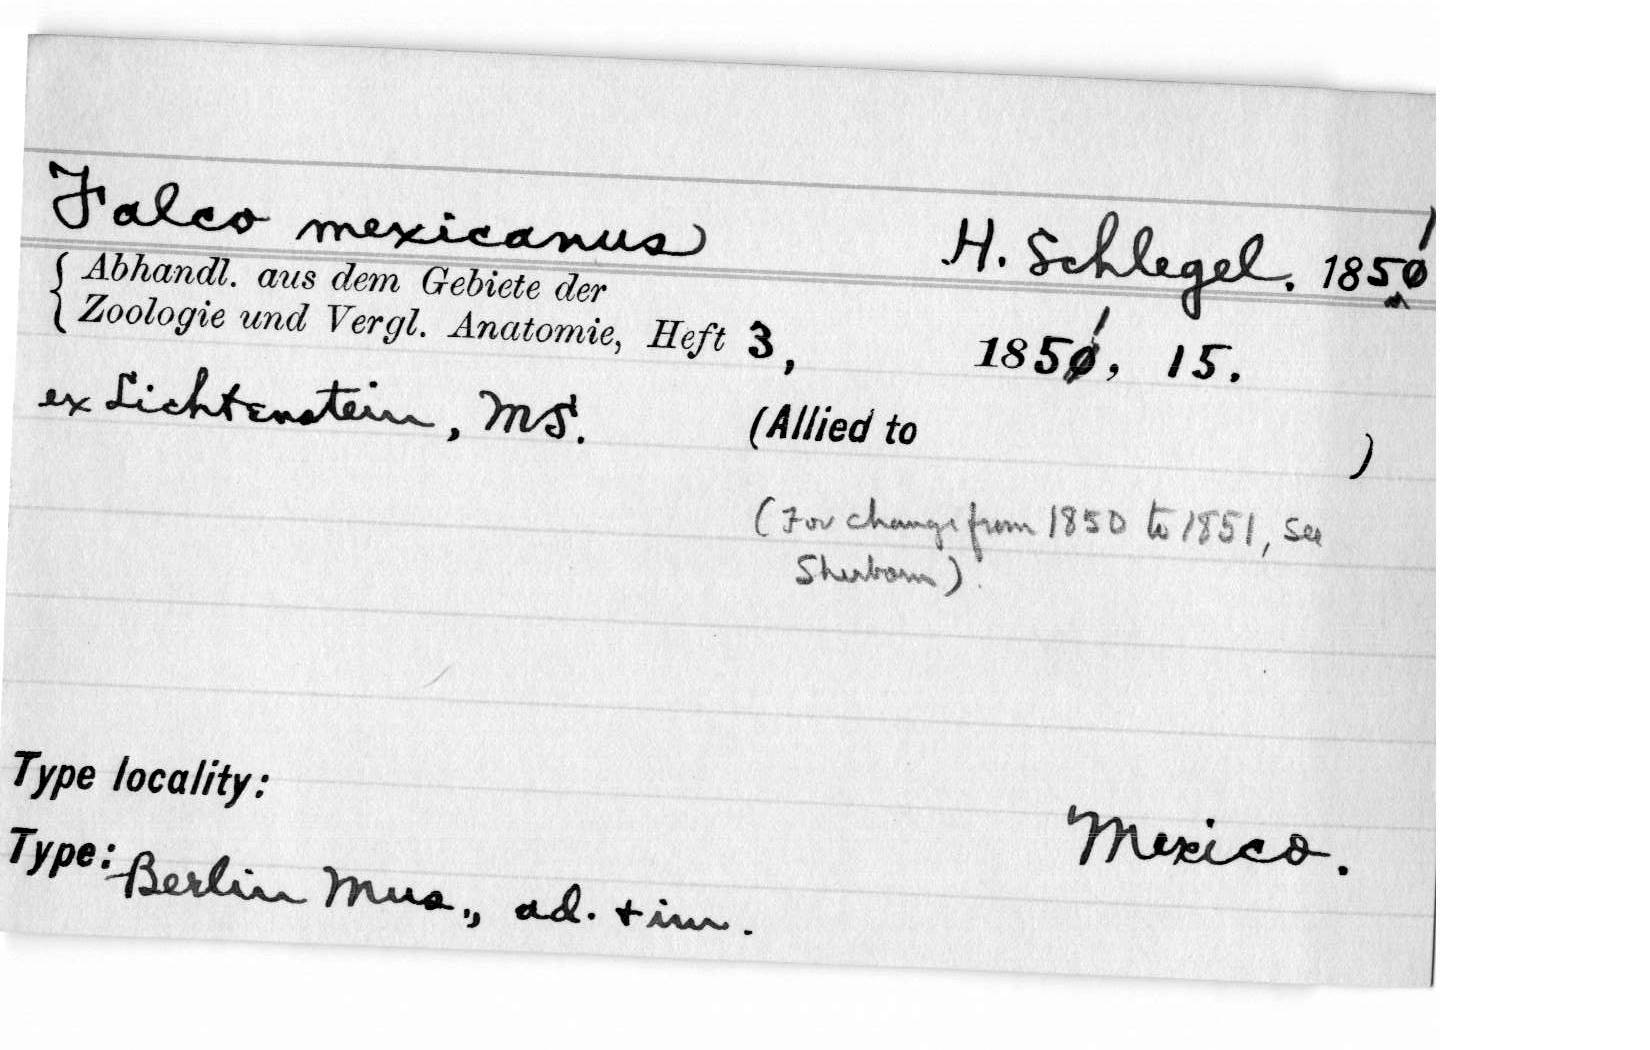 Falco mexicanus H. Schlegel. 1851
Abhandl. aus dem Gebiete der
Zoologie und Vergl. Anatomie, Heft 3, 1851, 15.
ex Lichtenstein, MS. (Allied to )
(For change from 1850 to 1851, see
Sherborn).
Type locality:
Mexico.
Type: Berlin Mus., ad. + im.